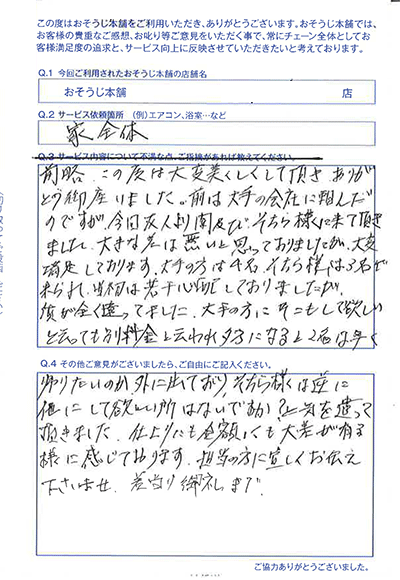 この度はおそうじ本舗をご利用いただき、ありがとうございます。おそうじ本舗では、
お客様の貴重なご感想、お叱り等ご意見をいただく事で、常にチェーン全体としてお
客様満足度の追求と、サービス向上に反映させていただきたいと考えております。
Q.1 今回ご利用されたおそうじ本舗の店舗名
おそうじ本舗 店
Q.2 サービス依頼箇所 (例)エアコン、浴室…など
家全体
Q.3 サービス内容について不満な点、ご指摘があれば教えてください。
前略、この度は大変美くしくして頂き ありが
とう御座いました。前は大手の会社に頼んだ
のですが、今回友人より聞き及び、そちら様に来て頂き
ました。大きな差は無いと思っておりましたが、大変
満足しております。大手の方は4名、そちら様は3名で
来られ、当初は若干心配しておりましたが、
質が全く違ってました。大手の方に そこもして欲しい
と云っても別料金と云われ夕方になると2名は早く
Q.4 その他ご意見がございましたら、ご自由にご記入ください。
帰りたいのか外に出ており、そちら様は逆に
他にして欲しい所はないですか?と気を遣って
頂きました。仕上りにも金額にも大差が有る
様に感じております。担当の方に宜しくお伝え
下さいませ。差当り御礼まで。
ご協力ありがとうございました。